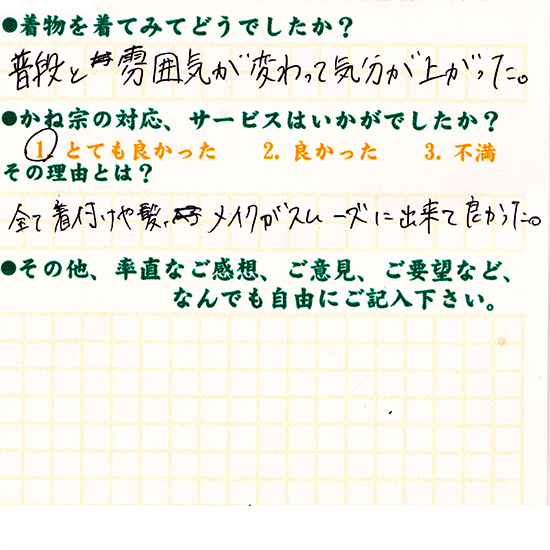 ●着物を着てみてどうでしたか？
普段と雰囲気が変わって気分が上がった。
●かね宗の対応、サービスはいかがでしたか？
1. とても良かった 2. 良かった 3. 不満
その理由とは？
全て着付けや髪、メイクがスムーズに出来て良かった。
●その他、率直なご感想、ご意見、ご要望など、
なんでも自由にご記入下さい。